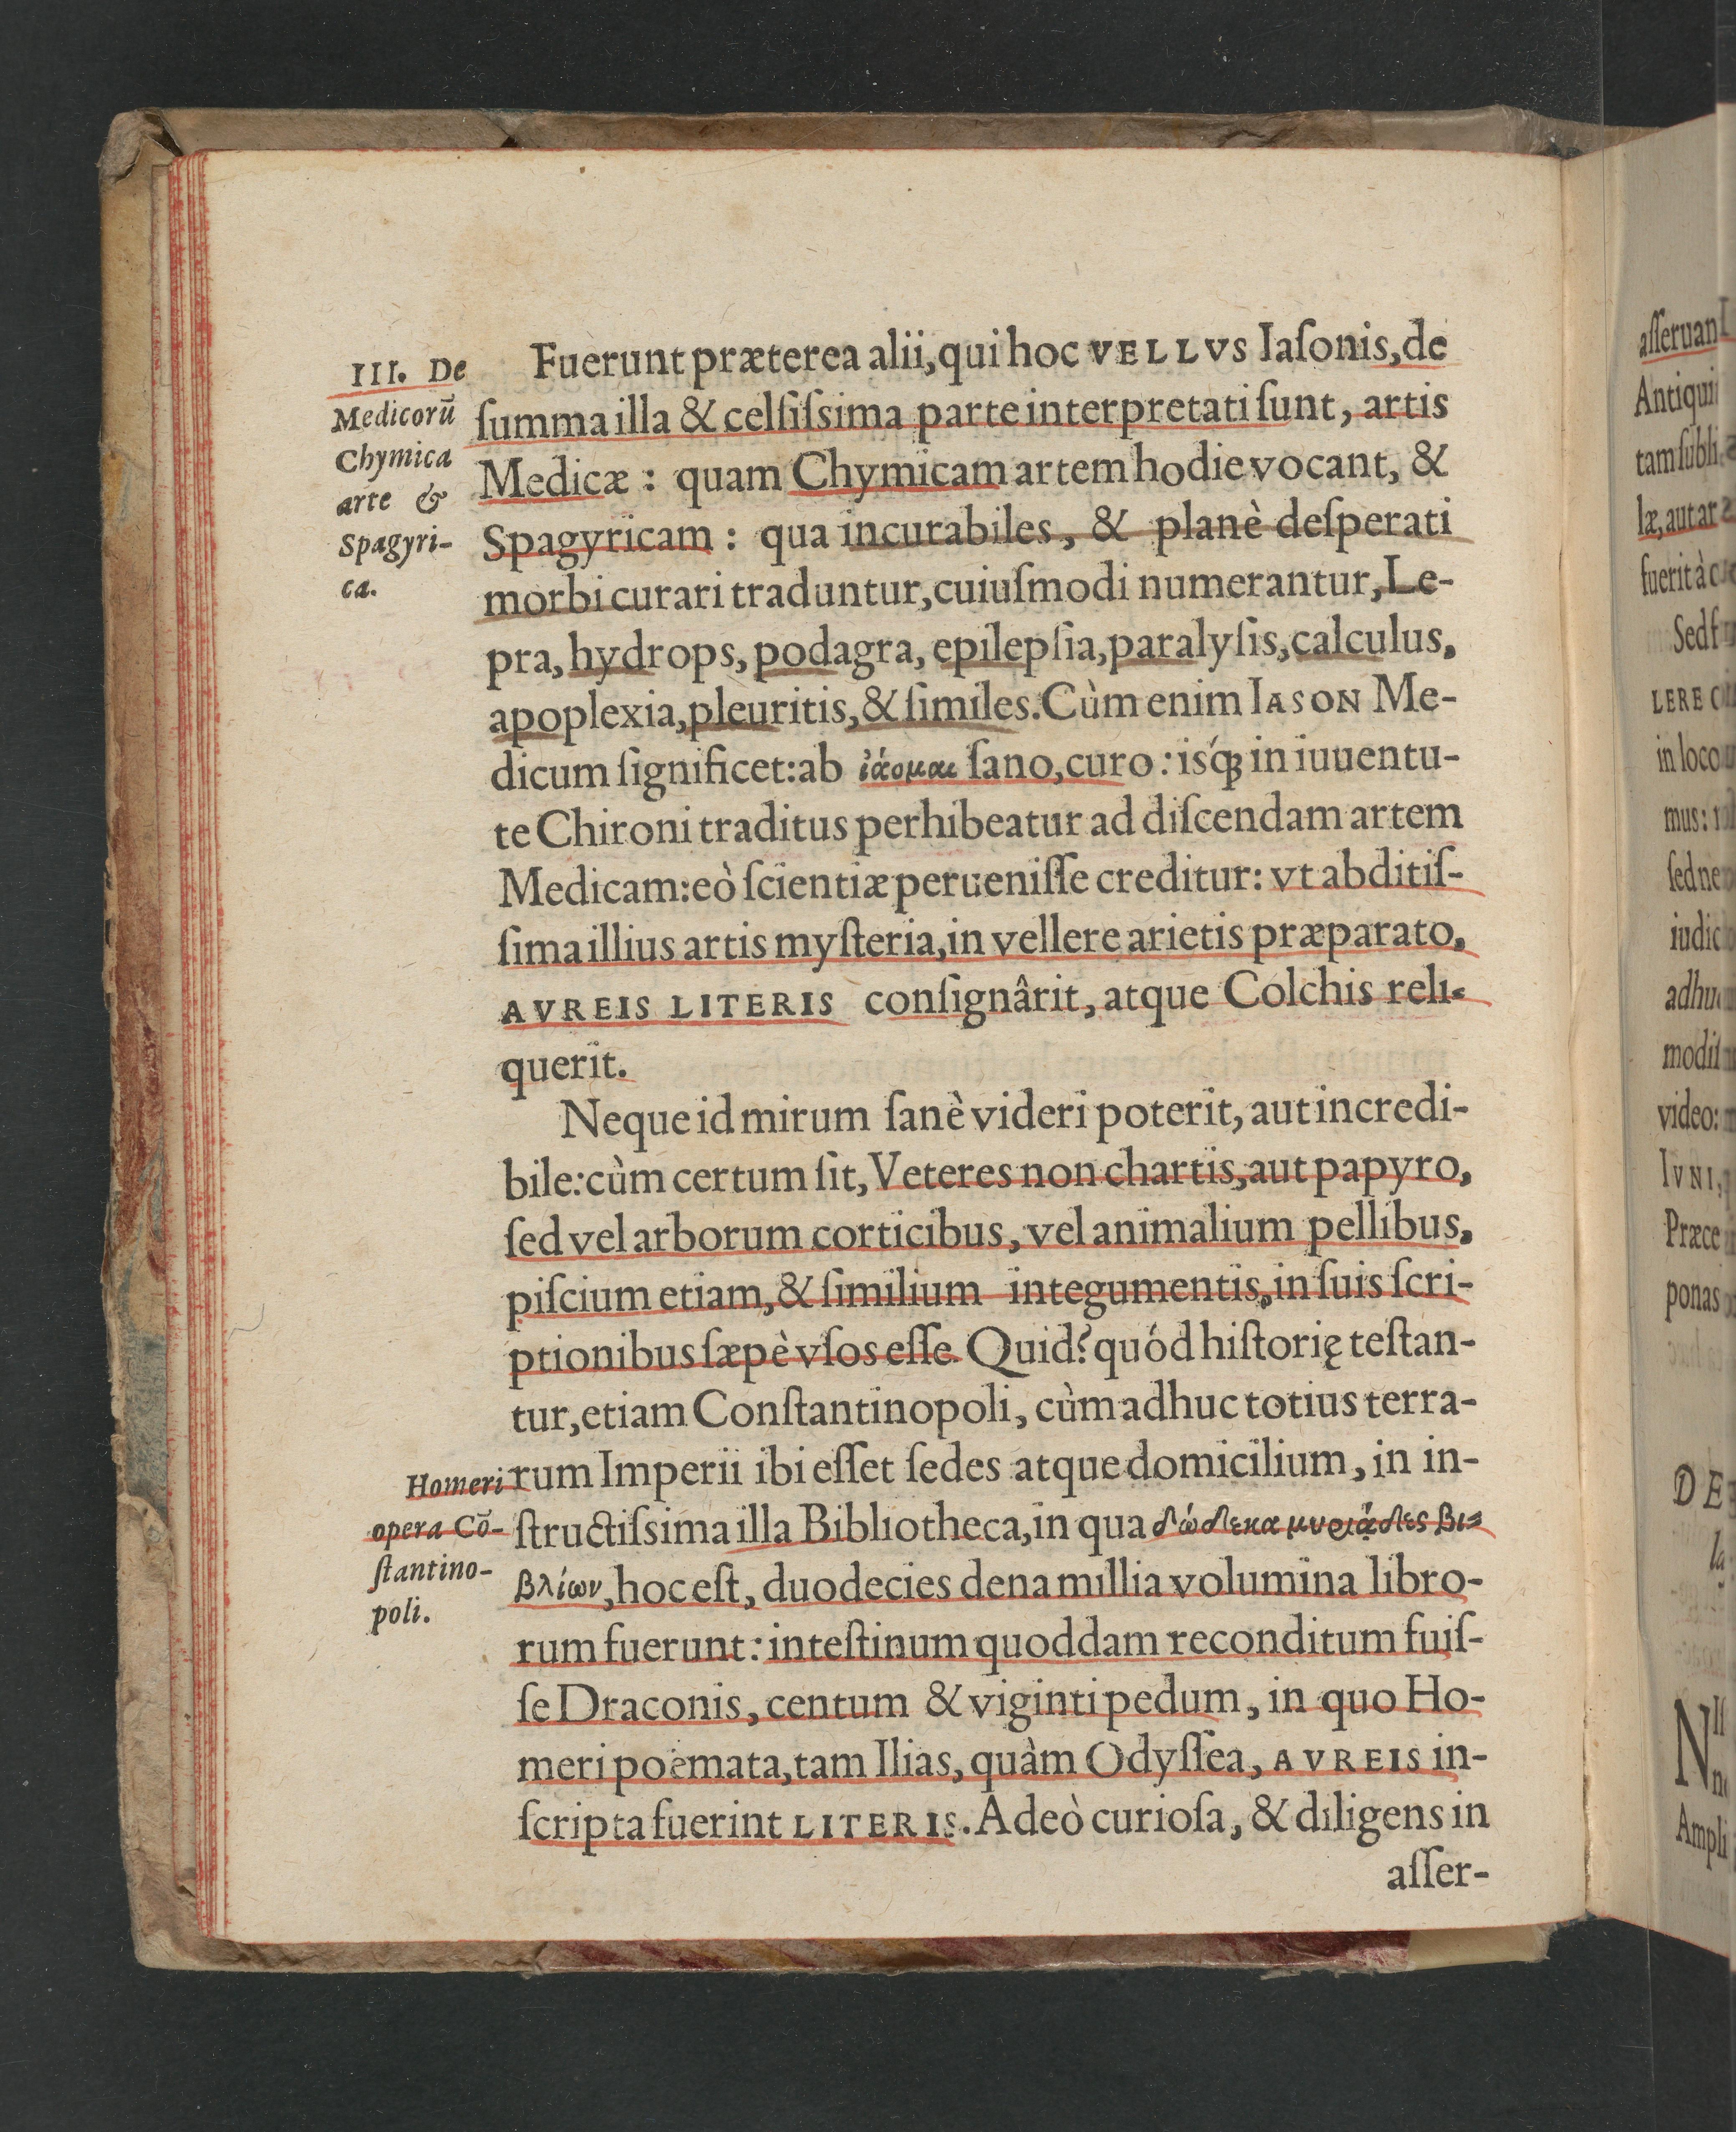 III. De
Medicorū
Chymica
arte &
Spagyri-
ca.
Fuerunt præterea alii, qui hoc VELLVS Iaſonis, de
ſumma illa & celſiſsima parte interpretati ſunt, artis
Medicæ : quam Chymicam artem hodie vocant, &
Spagyricam : qua incurabiles, & planè deſperati
morbi curari traduntur, cuiuſmodi numerantur, Le-
pra, hydrops, podagra, epilepſia, paralyſis, calculus,
apoplexia, pleuritis, & ſimiles. Cùm enim IASON Me-
dicum ſignificet: ab ἰάομαι ſano, curo : isq́ꝫ in iuuentu-
te Chironi traditus perhibeatur ad diſcendam artem
Medicam: eò ſcientiæ perueniſſe creditur: vt abditiſ-
ſima illius artis myſteria, in vellere arietis præparato,
AVREIS LITERIS conſignârit, atque Colchis reli-
querit.
Neque id mirum ſanè videri poterit, aut incredi-
bile: cùm certum ſit, Veteres non chartis, aut papyro,
ſed vel arborum corticibus, vel animalium pellibus,
piſcium etiam, & ſimilium integumentis, in ſuis ſcri-
ptionibus ſæpè vſos eſſe. Quid? quód hiſtorię teſtan-
tur, etiam Conſtantinopoli, cùm adhuc totius terra-
rum Imperii ibi eſſet ſedes atque domicilium, in in-
ſtructiſsima illa Bibliotheca, in qua δώδεκα μυριάδες βι-
βλίων, hoc eſt, duodecies dena millia volumina libro-
rum fuerunt : inteſtinum quoddam reconditum fuiſ-
ſe Draconis, centum & viginti pedum, in quo Ho-
meri poëmata, tam Ilias, quàm Odyſſea, AVREIS in-
ſcripta fuerint LITERIS. Adeò curioſa, & diligens in
aſſer-
Homeri
opera Cō-
ſtantino-
poli.
aſſeruan
Antiqui
tam ſubli
læ, aut ar
fuerit à c
Sed f
LERE C
in loco
mus:
ſed ne
iudic
adhu
modiſ
video:
IVNI,
Præce
ponas
DE
la
N
Ampli